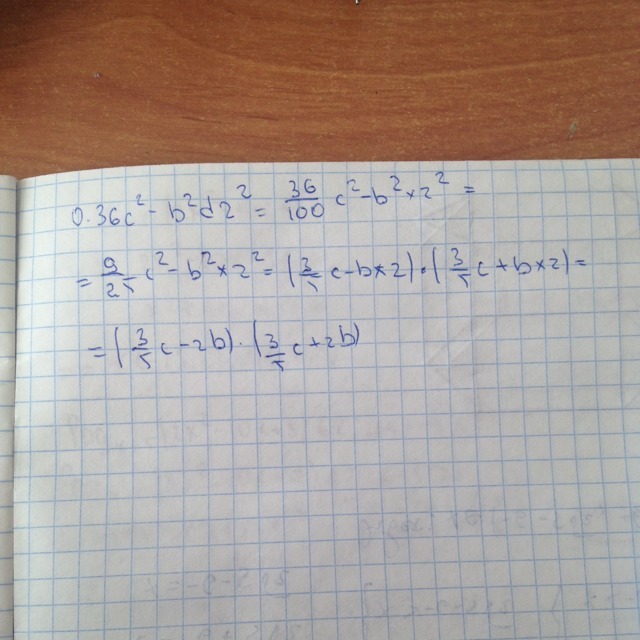 0.36c² - b²d2² = 36/100 c² - b² × 2² =
= 9/25 c² - b² × 2² = (3/5 c - b × 2) · (3/5 c + b × 2) =
= (3/5 c - 2b) · (3/5 c + 2b)